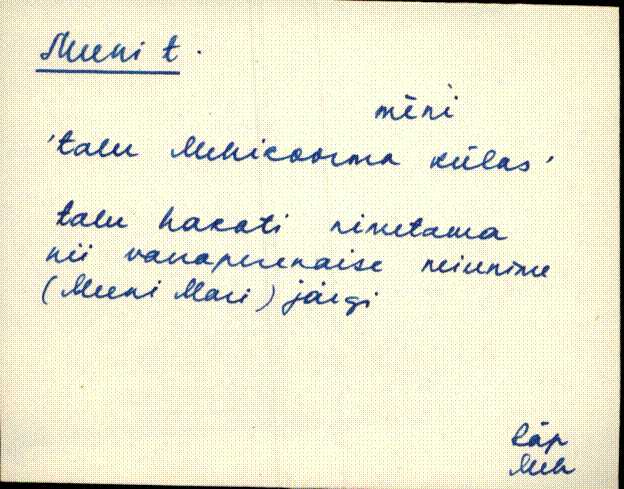 Meeni t.
mēni
'talu Mehikoorma külas'
talu hakati nimetama
nii vanaperenaise neiunime
(Meeni Mari) järgi
Räp
Meh